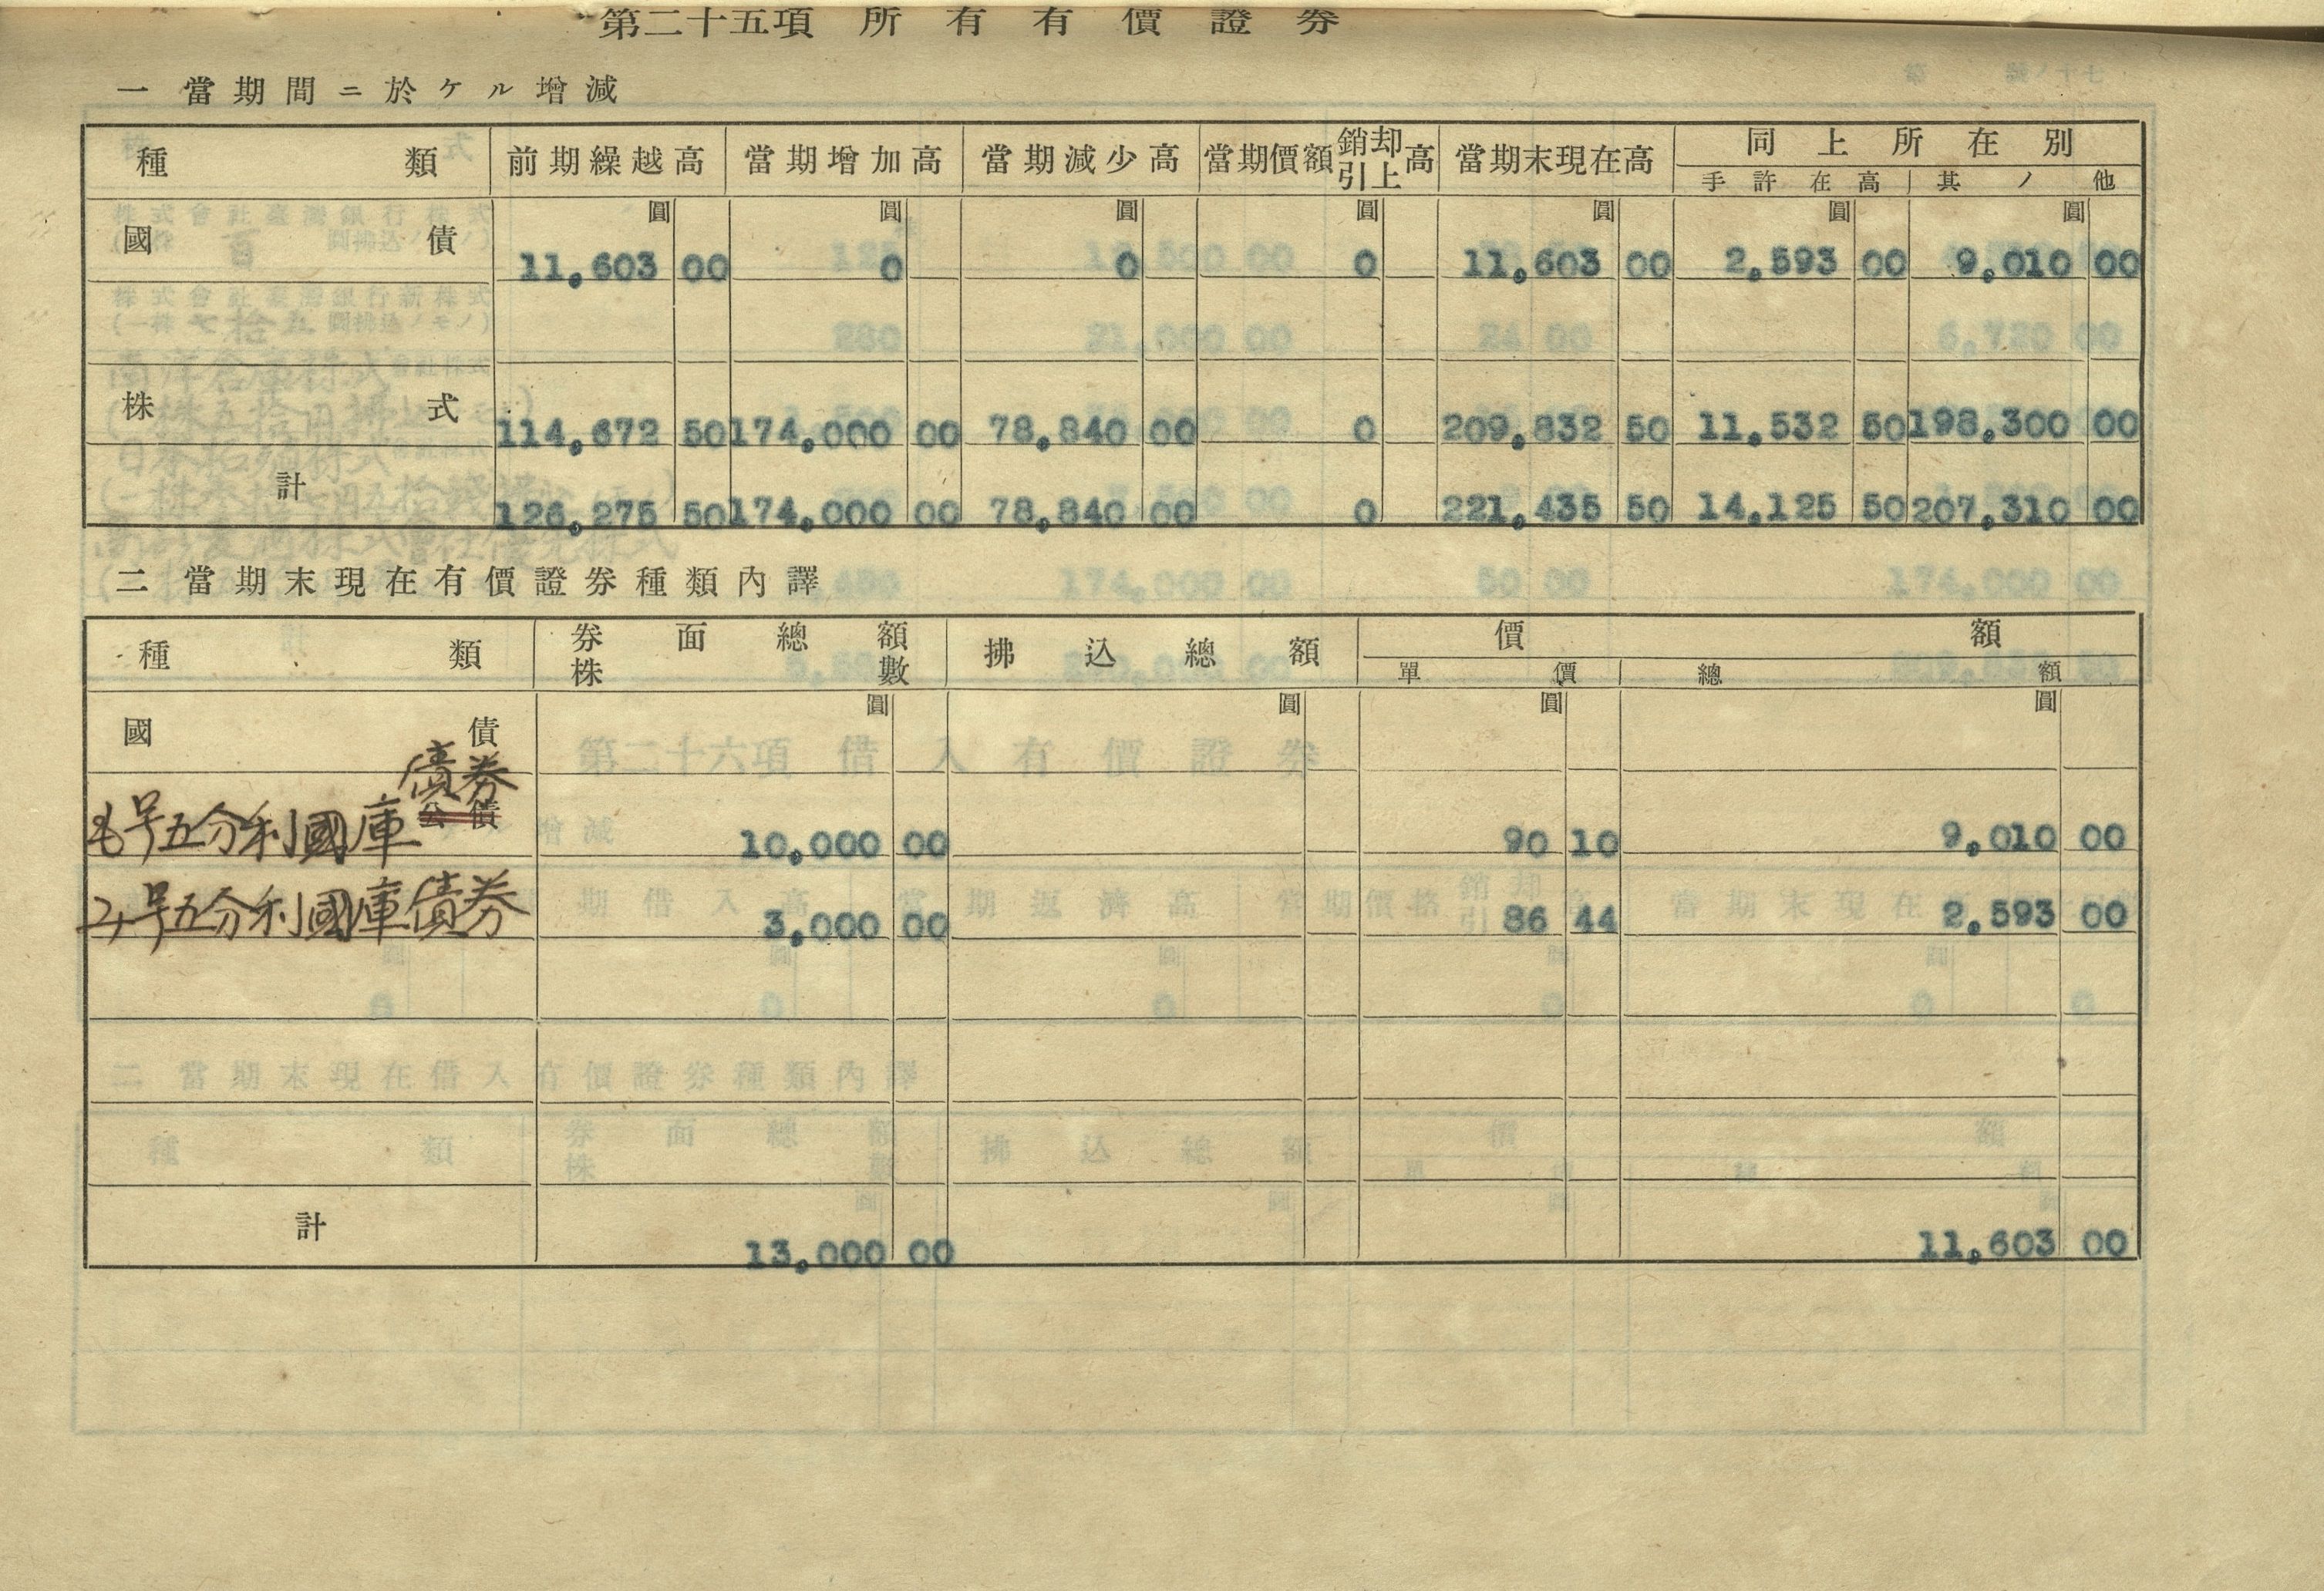 第二十五項 所有有價證券
一 當期間ニ於ケル増減
種類 前期繰越高 當期増加高 當期減少高 當期價額銷却引上高 當期末現在高 同上所在別
手許在高 其ノ他
圓 圓 圓 圓 圓 圓 圓
國債 11,603 00 0 0 0 11,603 00 2,593 00 9,010 00
株式 114,672 50 174,000 00 78,840 00 0 209,832 50 11,532 50 198,300 00
計 126,275 50 174,000 00 78,840 00 0 221,435 50 14,125 50 207,310 00
二 當期末現在有價證券種類內譯
種類 券面總額 株數 拂込總額 價額
單價 總額
圓 圓 圓 圓
國債
債券
も号五分利國庫公債 10,000 00 90 10 9,010 00
み号五分利國庫債券 3,000 00 86 44 2,593 00
計 13,000 00 11,603 00